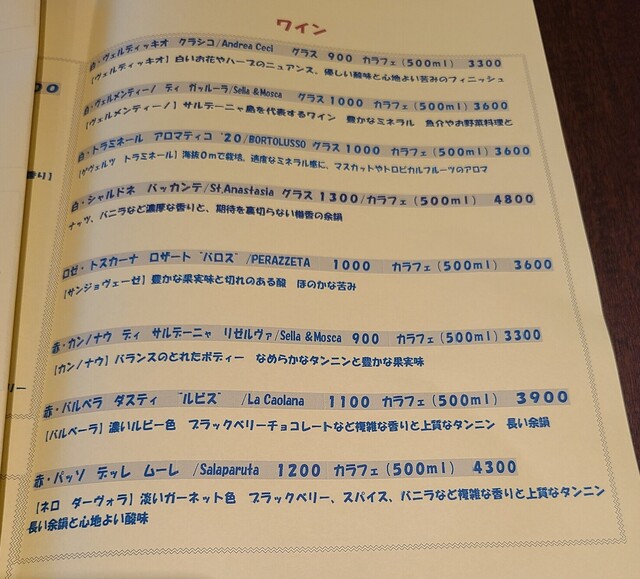 ワイン
白・ヴェルディッキオ クラシコ/Andrea Ceci グラス 900 カラフェ(500ml) 3300
【ヴェルディッキオ】白いお花やハーブのニュアンス、優しい酸味と心地よい苦みのフィニッシュ
白・ヴェルメンティーノ ディ ガッルーラ/Sella &Mosca グラス1000 カラフェ(500ml)3600
【ヴェルメンティーノ】サルデーニャ島を代表するワイン 豊かなミネラル 魚介やお野菜料理と
白・トラミネール アロマティコ '20/BORTOLUSSO グラス1000 カラフェ(500ml) 3600
【ゲヴェルツ トラミネール】海抜0mで栽培、適度なミネラル感に、マスカットやトロピカルフルーツのアロマ
白・シャルドネ バッカンテ/St.Anastasia グラス1300/カラフェ(500ml) 4800
ナッツ、バニラなど濃厚な香りと、期待を裏切らない樽香の余韻
ロゼ・トスカーナ ロザート "バロス" /PERAZZETA 1000 カラフェ(500ml) 3600
【サンジョヴェーゼ】豊かな果実味と切れのある酸 ほのかな苦み
赤・カンノナウ ディ サルデーニャ リゼルヴァ/Sella &Mosca 900 カラフェ(500ml)3300
【カンノナウ】バランスのとれたボディー なめらかなタンニンと豊かな果実味
赤・バルベラ ダスティ "ルビズ" /La Caolana 1100 カラフェ(500ml) 3900
【バルベーラ】濃いルビー色 ブラックベリーチョコレートなど複雑な香りと上質なタンニン 長い余韻
赤・パッソ デッレ ムーレ /Salaparuta 1200 カラフェ(500ml) 4300
【ネロ ダーヴォラ】淡いガーネット色 ブラックベリー、スパイス、バニラなど複雑な香りと上質なタンニン
長い余韻と心地よい酸味